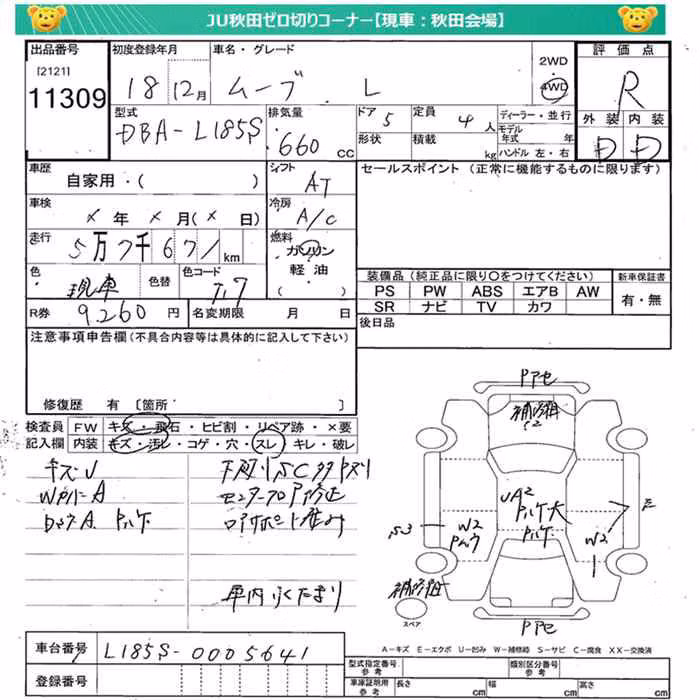 JU秋田ゼロ切りコーナー【現車：秋田会場】
出品番号
[2121]
11309
初度登録年月
18 12月
車名・グレード
ムーブ L
2WD
4WD
評価点
R
外装 内装
D D
型式
DBA-L185S
排気量
660 CC
ドア 5
形状
定員 4 人
積載 kg
ディーラー・並行
モデル年式 年
ハンドル 左・右
車歴
自家用・( )
シフト
AT
セールスポイント (正常に機能するものに限ります)
車検
× 年 × 月(× 日)
冷房
A/C
走行
5万7千671km
燃料
ガソリン
軽油
( )
色
現車
色替
色コード
装備品 (純正品に限り○をつけてください)
PS PW ABS エアB AW
SR ナビ TV カワ
新車保証書
有・無
R券 9,260 円
名変期限 月 日
後日品
注意事項申告欄(不具合内容等は具体的に記入して下さい)
修復歴 有 〔箇所 〕
検査員 FW キズ・飛石・ヒビ割・リペア跡・×要
記入欄 内装 キズ・汚レ・コゲ・穴・スレ・キレ・破レ
キズU
車台番号 L185S-0005641
登録番号
補修跡
S2
UA2
S3
W2
W2
E
スペア
A－キズ E－エクボ U－凹み W－補修跡 S－サビ C－腐食 XX－交換済
型式指定番号 参考
類別区分番号 参考
車庫証明用 参考
長さ cm
幅 cm
高さ cm